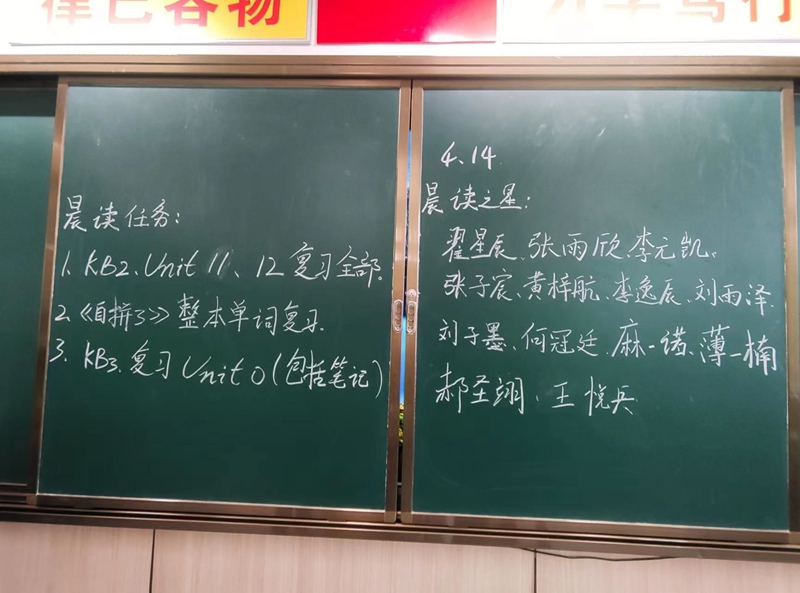 律己容物
晨读任务:
1. KB2、Unit 11、12 复习全部.
2.《自拼3》整本单词复习.
3. KB3. 复习 Unit 0 (包括笔记)
4、14
晨读之星:
翟星辰、张雨欣、李元凯、
张子宸、黄梓航、李逸辰、刘雨泽
刘子墨、何冠廷、麻一诺、薄一楠
郝圣翊、王悦兵